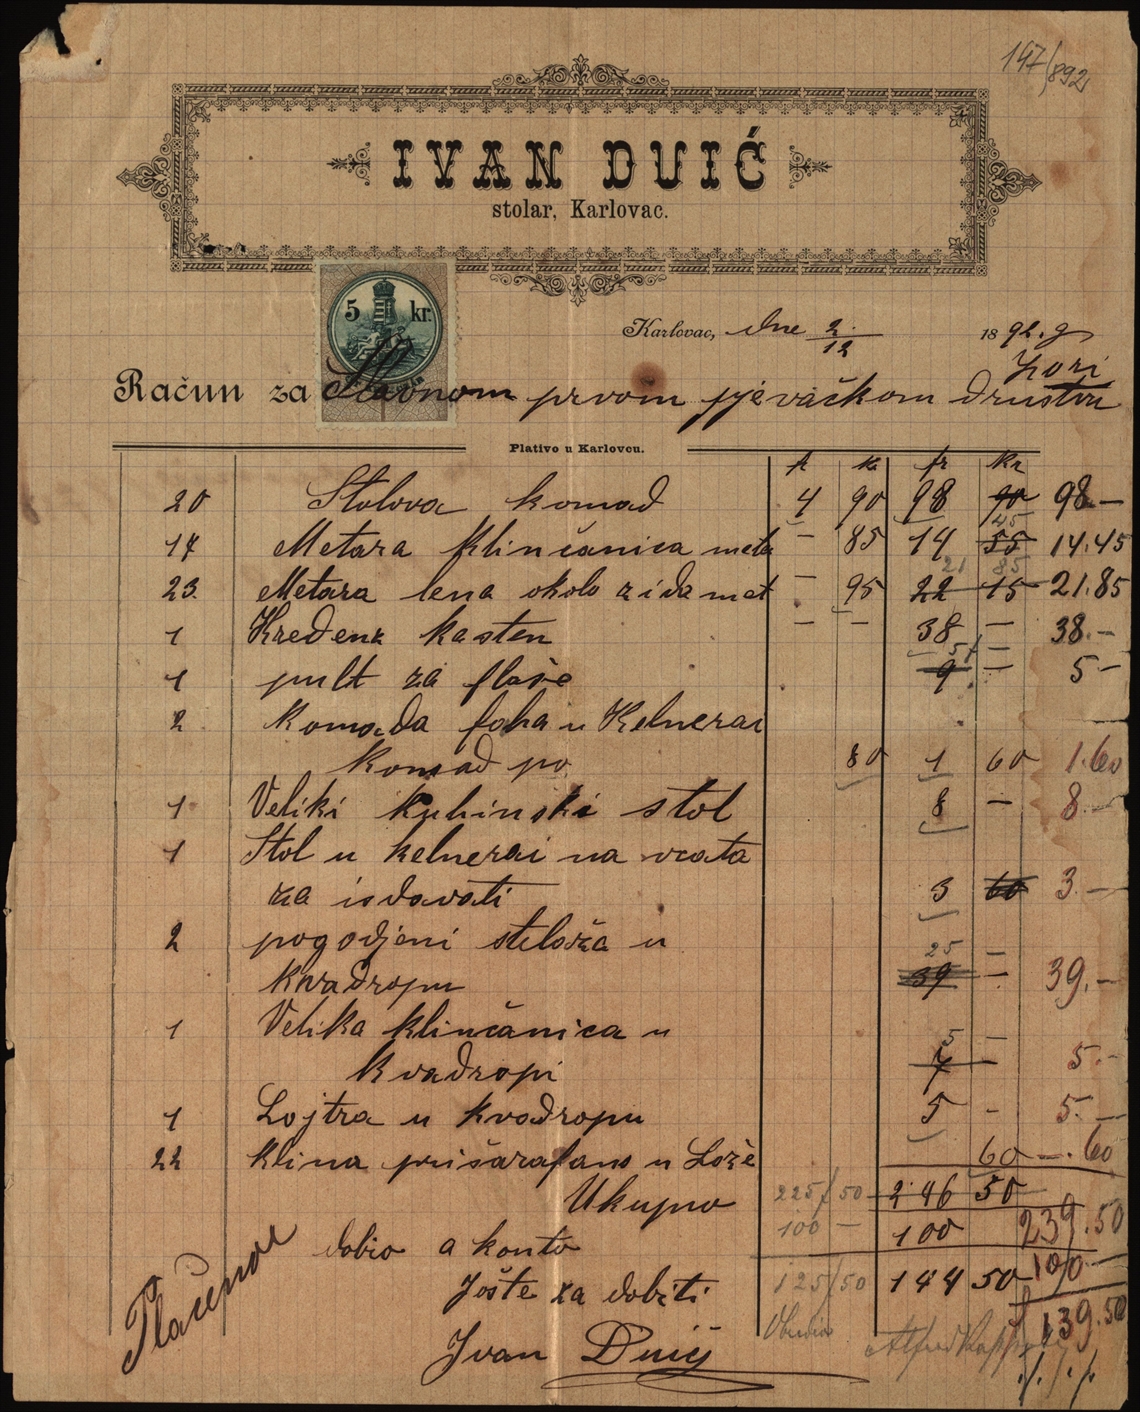 197/892
IVAN DUIĆ
stolar, Karlovac.
5 kr.
Karlovac, dne 2/12 1892. g
Zori
Račun za Slavnom prvom pjevačkom društvu
Plativo u Karlovcu.
f k fr kr
20 Stolova komad 4 90 98 90 98.-
45
17 Metara klinčanica meta - 85 14 55 14.45
21 85
23. Metara lena okolo zida met - 95 22 15 21.85
1 Kredenz kasten - - 38 - 38.-
5 -
1 pult za flaše 9 - 5 -
2 Komada faha u Kelnerai
komad po 80 1 60 1.60
1 Veliki kuhinski stol 8 - 8.-
1 Stol u kelnerai na vrata
za isdavati 3 60 3.-
2 pogodjeni stelaža u
25 -
kvadropu 39 - 39.-
1 Velika klinčanica u
5 -
kvadropi 7 - 5.-
1 Lojtra u kvadropu 5 - 5.-
22 klina prišarafano u Lože 60 -.60
Ukupno 225/50 246 50
239.50
dobio a konto 100 - 100 100
Jošte za dobiti 125/50 144 50
139.50
Ivan Duić
Plaćeno